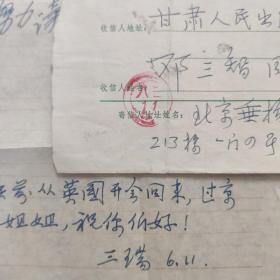 努力诗
收信人地址:
甘肃人民出
收信人姓名:
邓三智
寄信人地址姓名:
北京垂杨
213楼一门04号
从英國开会回来,过京
姐姐,祝你们好!
三瑞 6.11.